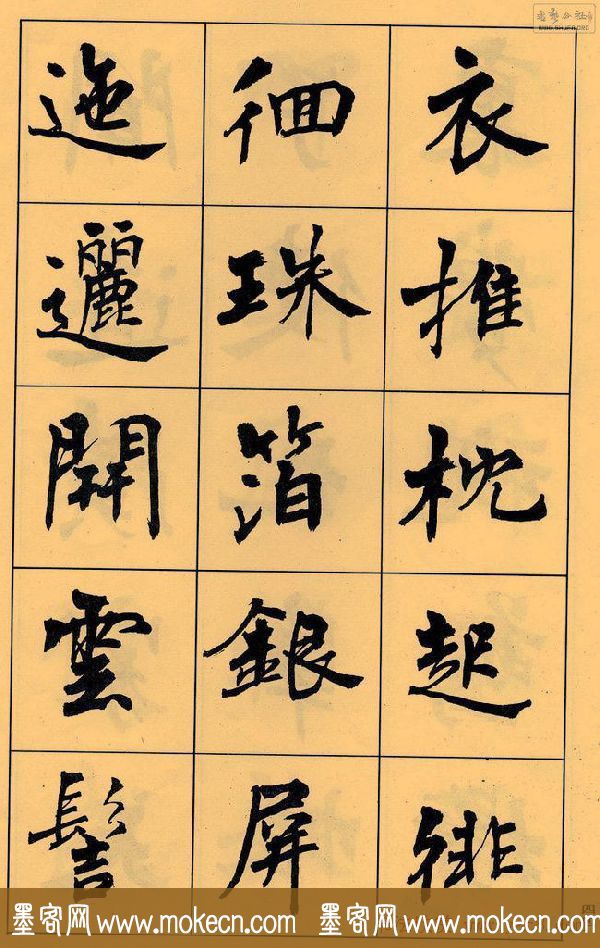 衣推枕起徘
徊珠箔銀屏
迤邐開雲髻
墨客网 www.mokecn.com 墨客网 www.mokecn.com